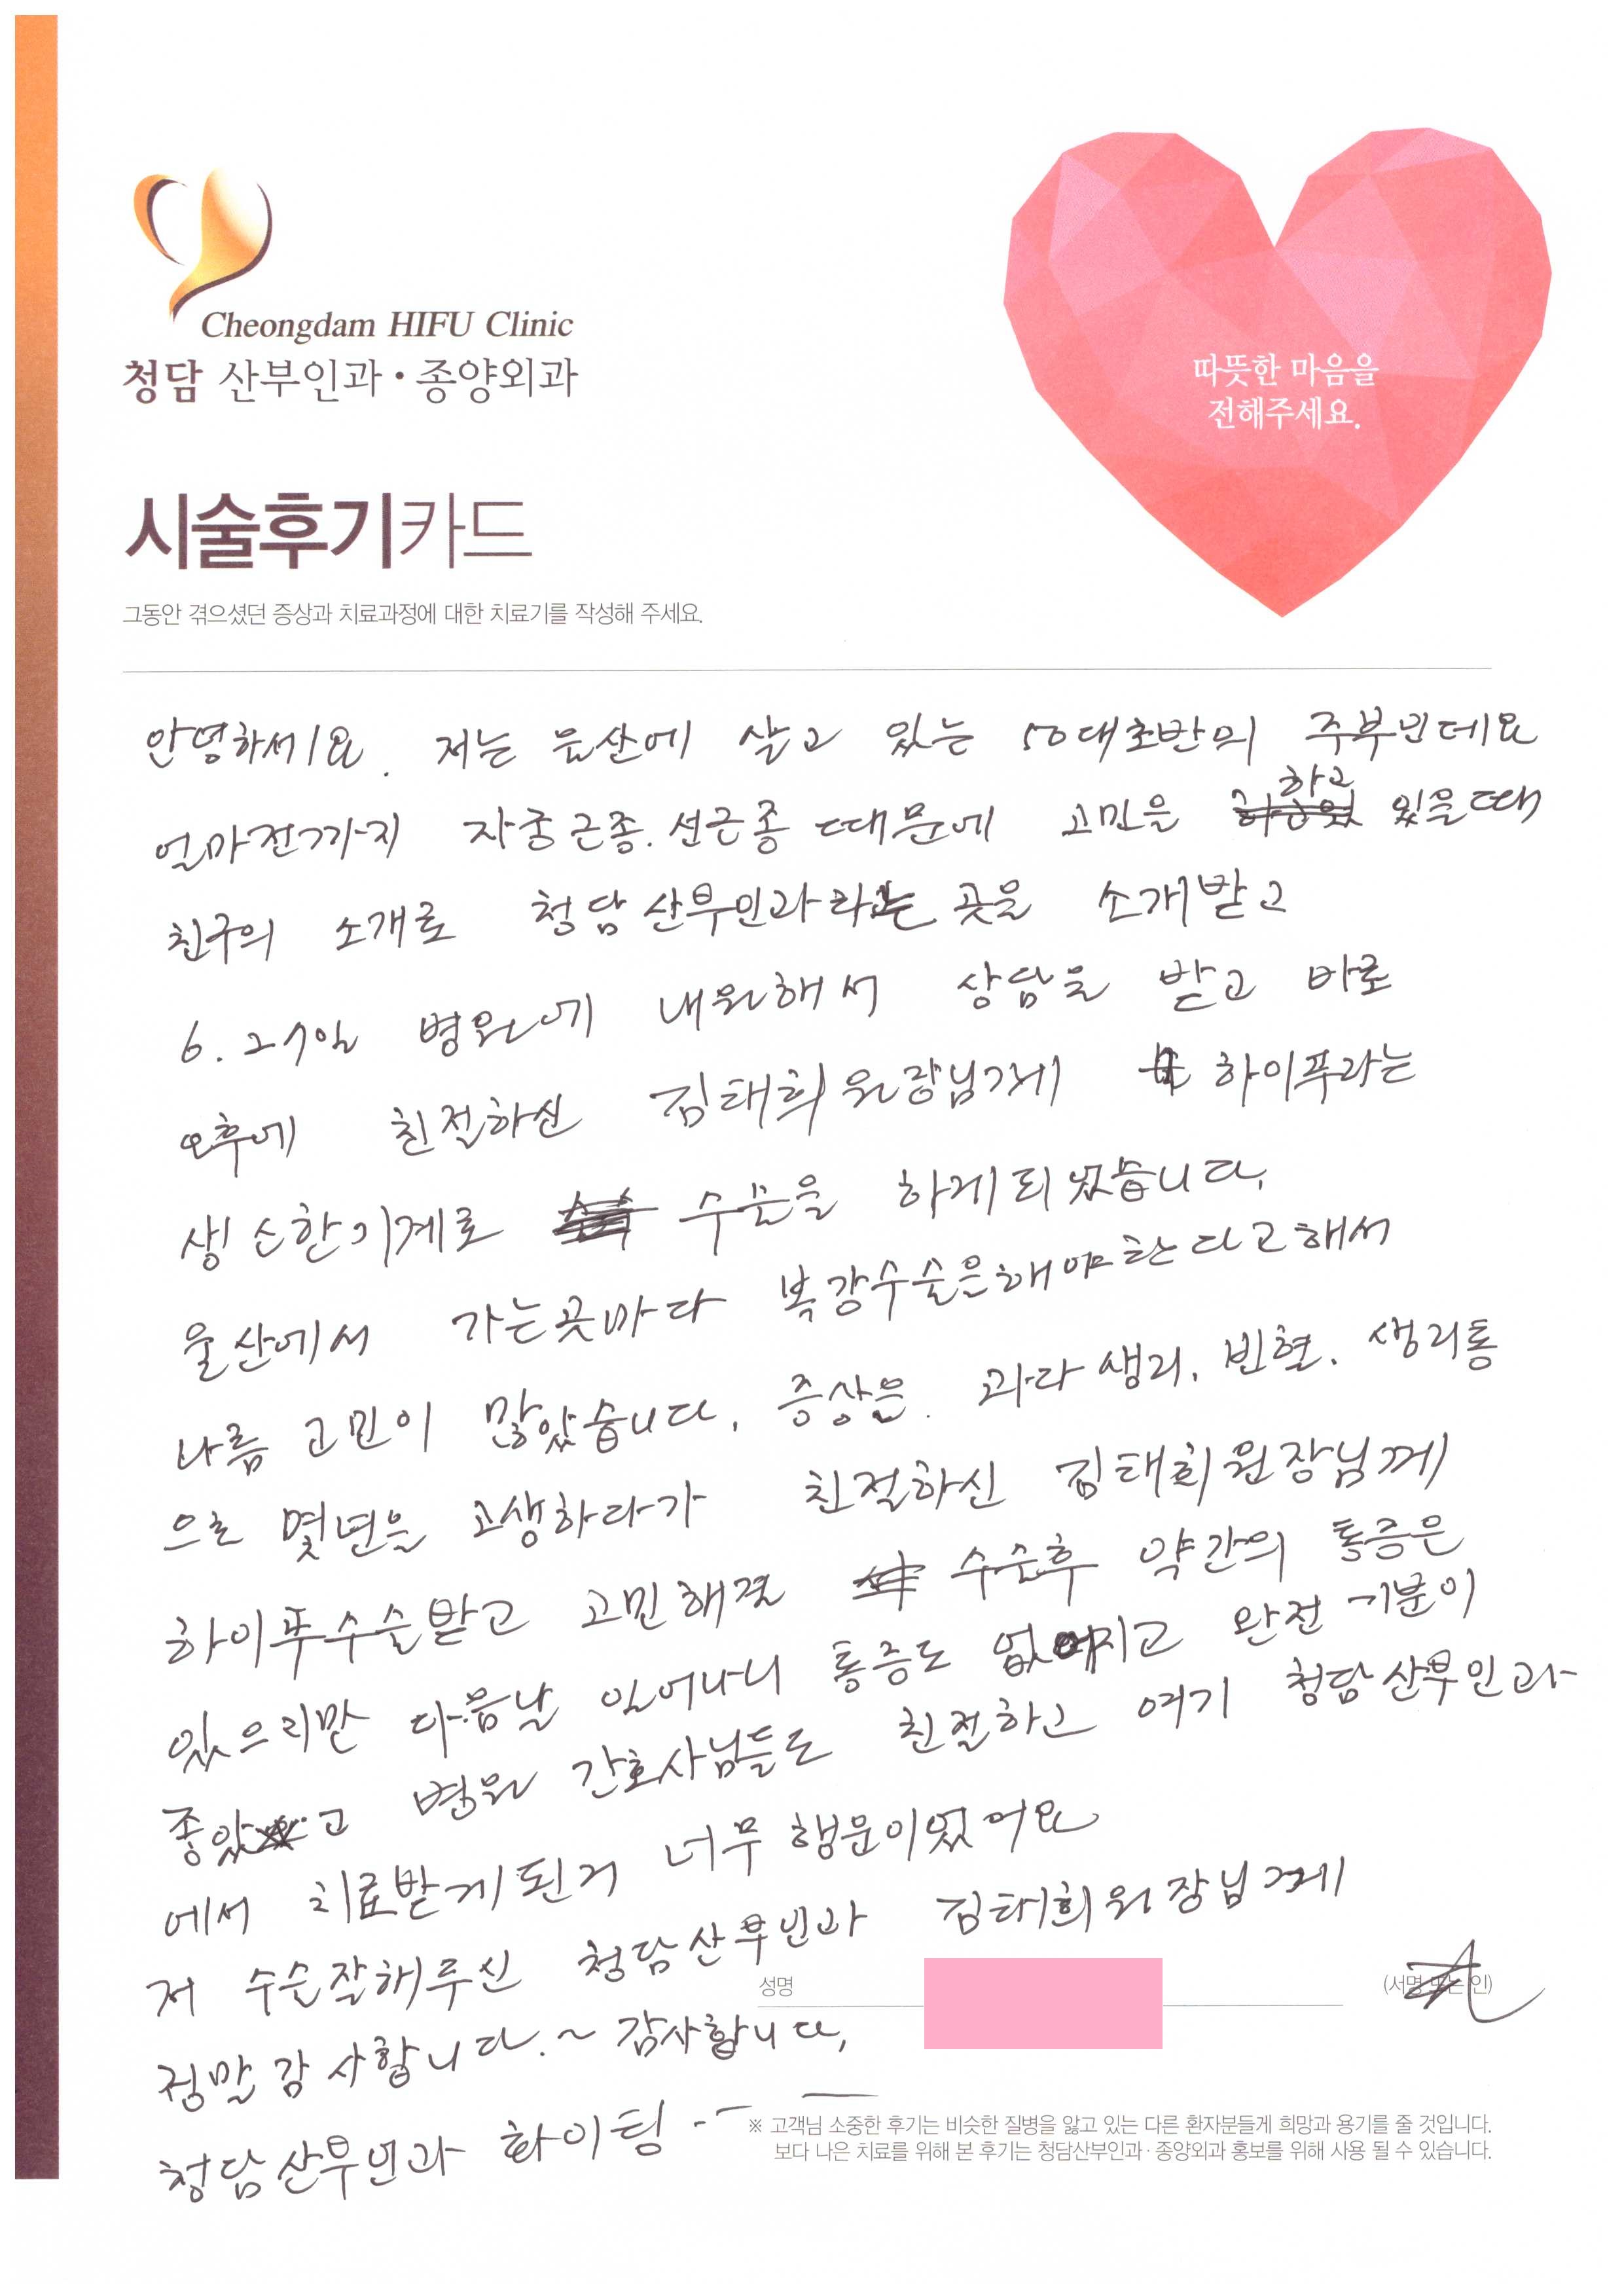 Cheongdam HIFU Clinic
청담 산부인과·종양외과
따뜻한 마음을
전해주세요.
시술후기카드
그동안 겪으셨던 증상과 치료과정에 대한 치료기를 작성해 주세요.
안녕하세요. 저는 울산에 살고 있는 50대초반의 주부인데요
얼마전까지 자궁근종. 선근종 때문에 고민을 하고 있을때
친구의 소개로 청담산부인과라는 곳을 소개받고
6. 27일 병원에 내원해서 상담을 받고 바로
오후에 친절하신 김태희원장님께 하이푸라는
생소한기계로 수술을 하게되었습니다.
울산에서 가는곳마다 복강수술을해야한다고해서
나름 고민이 많았습니다. 증상은. 과다생리. 빈혈. 생리통
으로 몇년을 고생하다가 친절하신 김태희원장님께
하이푸수술받고 고민해결 수술후 약간의 통증은
있으리만 다음날 일어나니 통증도 없어지고 완전 기분이
좋았고 병원 간호사님들도 친절하고 여기 청담산부인과
에서 치료받게된거 너무 행운이었어요
저 수술잘해주신 청담산부인과 김태희원장님께
정말감사합니다.~ 감사합니다,
청담산부인과 화이팅 --
성명
(서명 또는 인)
※ 고객님 소중한 후기는 비슷한 질병을 앓고 있는 다른 환자분들게 희망과 용기를 줄 것입니다.
보다 나은 치료를 위해 본 후기는 청담산부인과·종양외과 홍보를 위해 사용 될 수 있습니다.